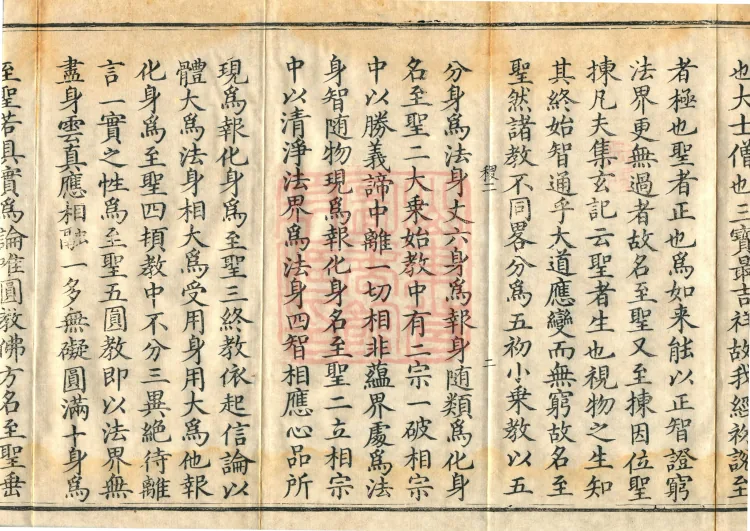 也大士僧也三寶最吉祥故我經初說至
者極也聖者正也爲如来能以正智證窮
法界更無過者故名至聖又至揀因位聖
揀凡夫集玄記云聖者生也視物之生知
其終始智通乎大道應變而無窮故名至
聖然諸教不同畧分爲五初小乗教以五
稷二
二
分身爲法身丈六身爲報身随類爲化身
名至聖二大乗始教中有二宗一破相宗
中以勝義諦中離一切相非蘊界處爲法
身智随物現爲報化身名至聖二立相宗
中以清淨法界爲法身四智相應心品所
現爲報化身爲至聖三終教依起信論以
體大爲法身相大爲受用身用大爲他報
化身爲至聖四頓教中不分三異絶待離
言一實之性爲至聖五圓教即以法界無
盡身雲真應相融一多無礙圓滿十身爲
至聖若具實爲論唯圓教佛方名至聖垂